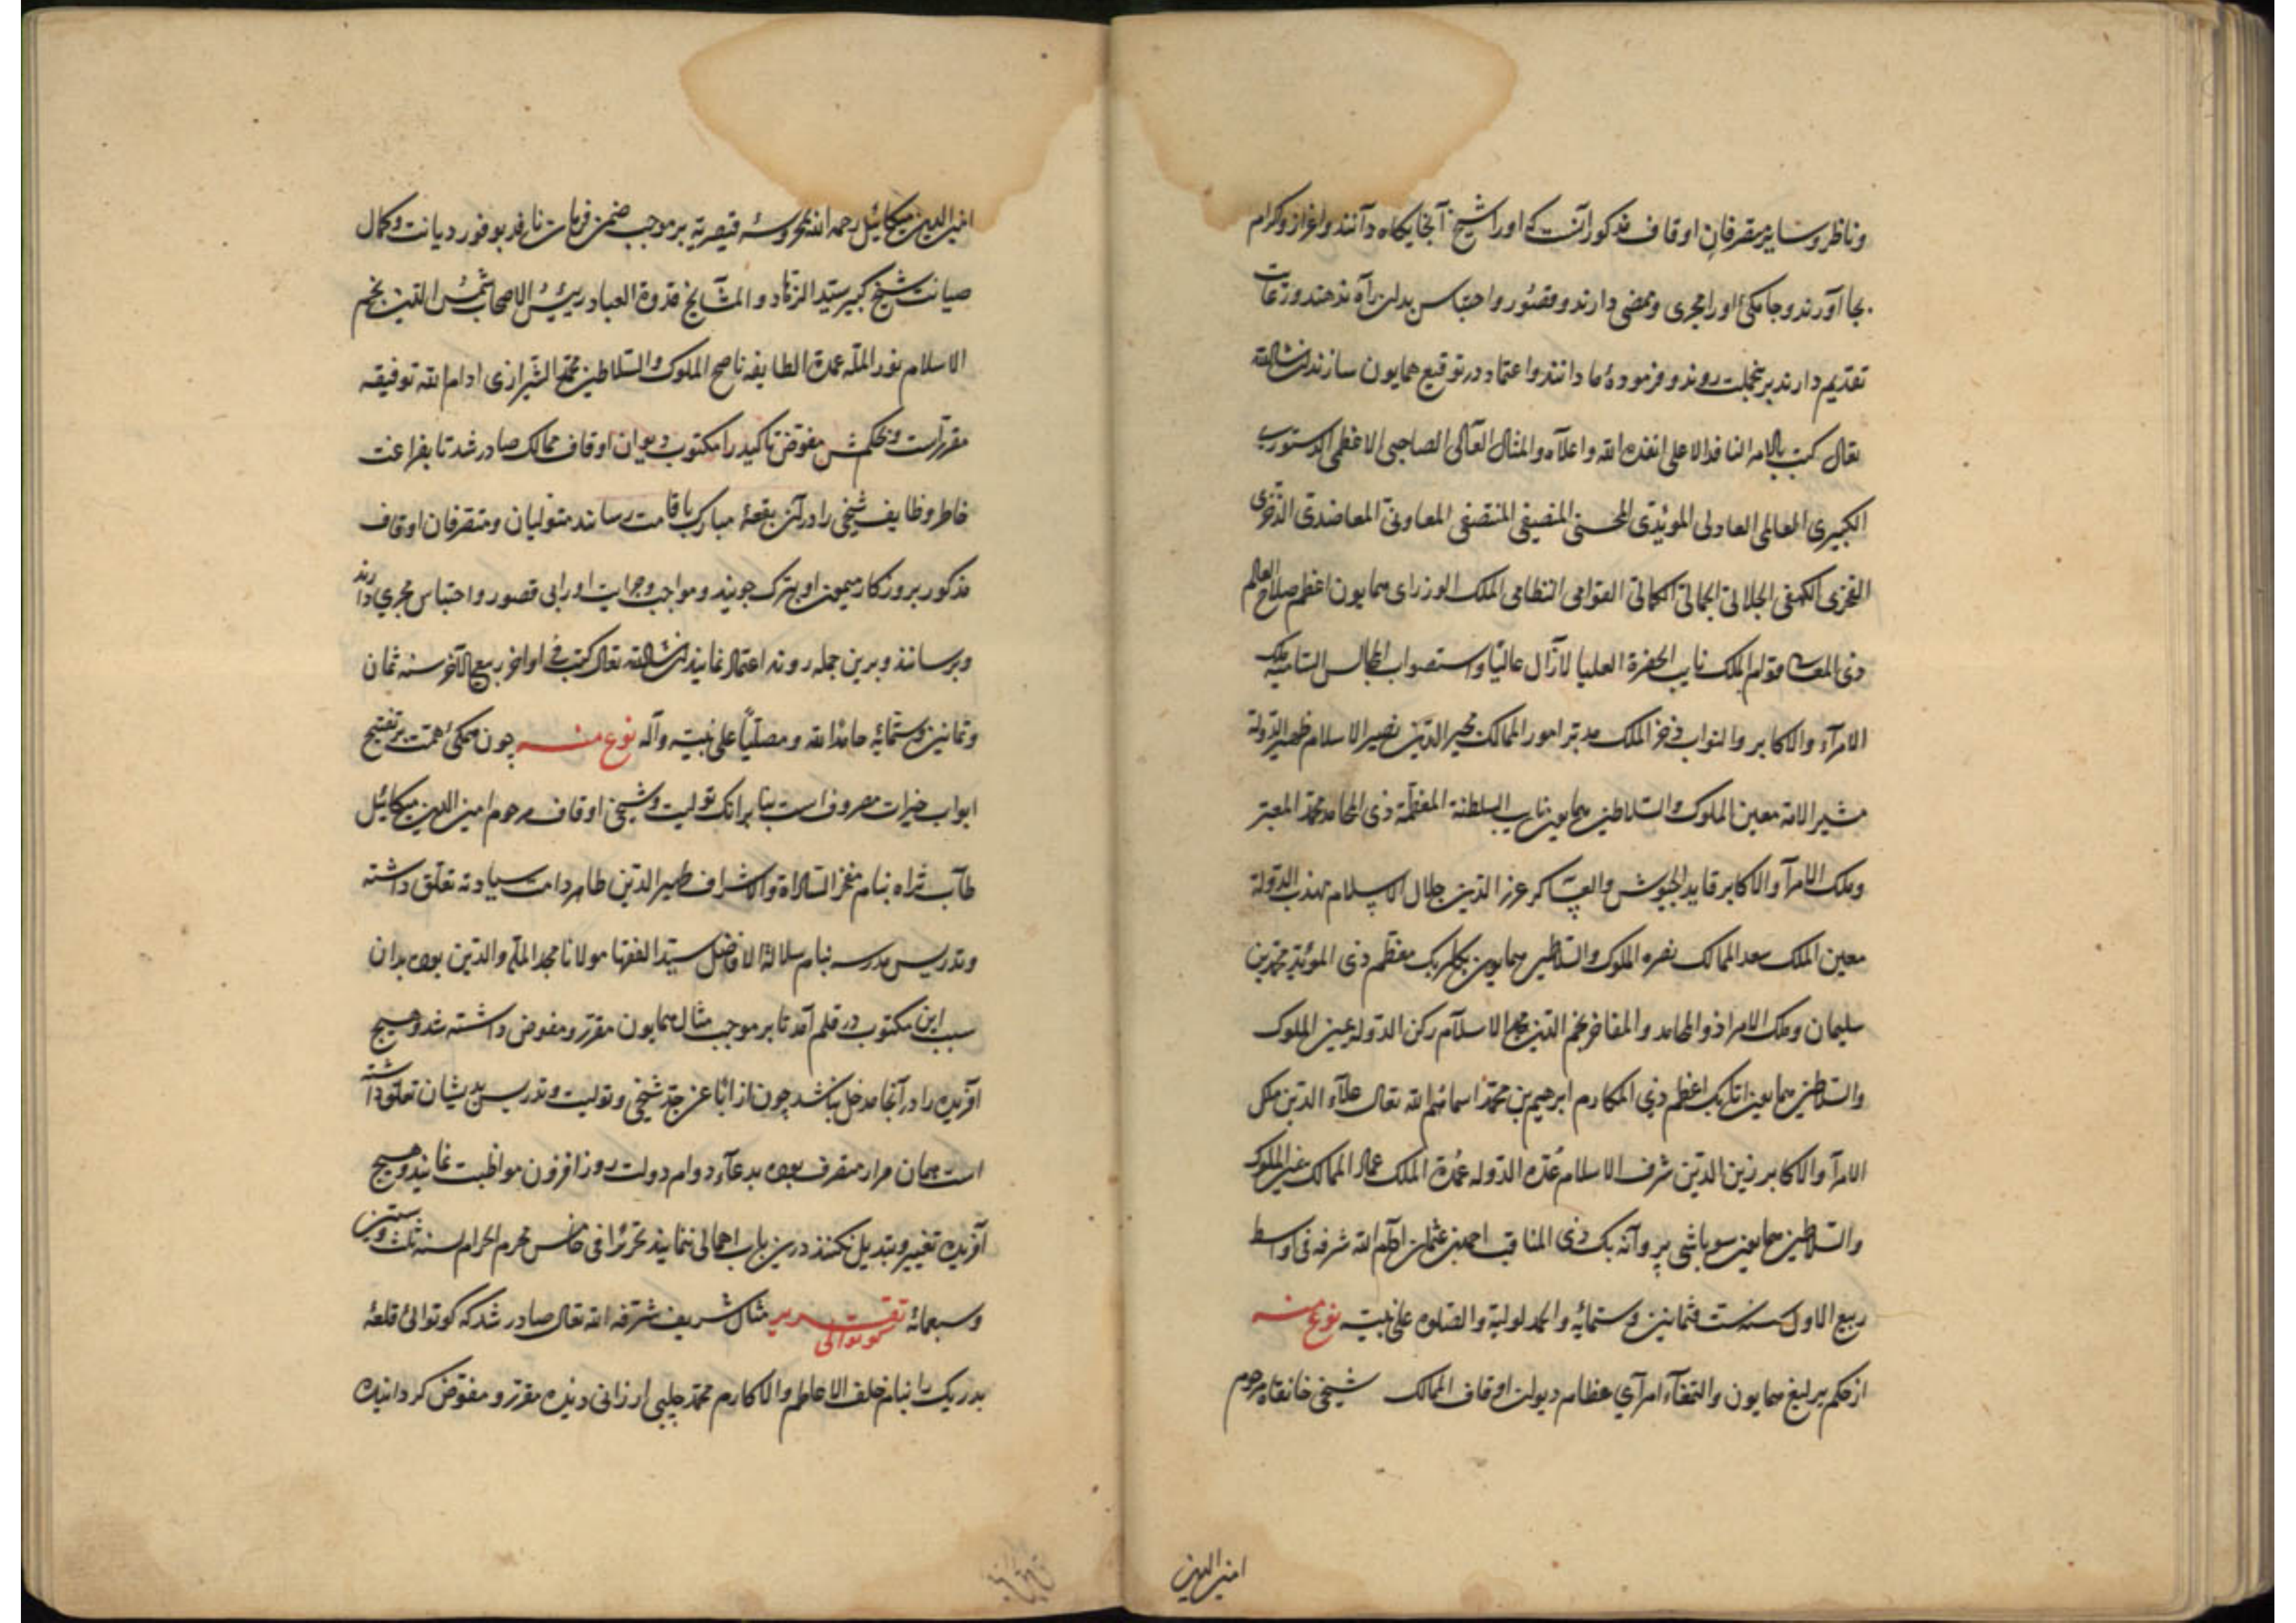 وناظر وسایر متصرفان اوقاف مذکور آنست که اورا شیخ آنجایکاه دانند واعزاز وکرام
بجا آورند وجامکیٔ اورا مجری وممضی دارند وقصور واحتباس بدان راه ندهند ورعات
تقدیم دارند برینجملت روند وفرمودهٔ ما دانند واعتماد در توقیع همایون سازند انشاالله
تعالی کتب بالامر النافذ الاعلی انفذه الله واعلاه والمثال العالی الصاحبی الاعظمی الدستوری
الکبیری المعالی العادلی المویدی المحسنی المنصفی المعاونی المعاضدی الذخری
الفخری الکهفی الجلالی الجمالی الکمالی القوامی النظامی الملک الوزرای همایون اعظم صلاح العالم
ذی المعالی قوام الملک نایب الحضرة العلیا لازال عالیا واستصواب المجالس السامیه ملک
الامرآء والاکابر والنواب فخر الملک مدبر امور الممالک مجیر الدین نصیر الاسلام ظهیر الدوله
مشیر الامه معین الملوک والسلاطین همایون نایب السلطنة المعظمة ذی المحامد محمد المعتبر
وملک الامرآ والاکابر قاید الجیوش والعساکر عز الدین جلال الاسلام مهذب الدولة
معین الملک سعد الممالک نصره الملوک والسلاطین همایون بکلربک معظم ذی المویّد محمد بن
سلیمان وملک الامرا ذو المحامد والمفاخر نجم الدین مجد الاسلام رکن الدوله عین الملوک
والسلاطین همایون اتابک اعظم ذی المکارم ابرهیم بن محمد اسماهم الله تعالی علآء الدین ملک
الامرآ والاکابر زین الدین شرف الاسلام عدّه الدوله عمدة الملک عماد الممالک معین الملوک
والسلاطین همایون سوباشی پروآنه بک ذی المناقب احمد بن عثمان ادام الله شرفه فی اواسط
ربیع الاول سنه ست وثمانین وستمایٔه والحمد لولیه والصلوه علی نبیه نوع منه
از حکم یرلیغ همایون والتمغآء امرآی عظام دیوان اوقاف الممالک شیخی خانقاه مرحوم
امین الدین
امین الدین میکائیل رحمه الله بمحروسهٔ قیصریه بر موجب ضمن فرمان نافذ بوفور دیانت وکمال
صیانت شیخ کبیر سید الزهاد والمشایخ قدوة العباد رییس الاصحاب شمس الدین نجم
الاسلام نور المله عمدة الطایفه ناصح الملوک والسلاطین محمد الشیرازی ادام الله توفیقه
مقرر است وبحکمش مفوض تاکید را مکتوب دیوان اوقاف ممالک صادر شد تا بفراغت
خاطر وظایف شیخی را در آن بقعهٔ مبارک باقامت رساند متولیان ومتصرفان اوقاف
مذکور بروزکار میمون او تبرک جویند ومواجب وجرایت اورا بی قصور واحتباس مجری دارند
وبرسانند وبرین جمله روند اعتماد نمایند انشاالله تعالی کتب فی اواخر ربیع الآخر سنه ثمان
وثمانین وستمایٔه حامدا لله ومصلّیا علی نبیه وآله نوع منه چون همکیٔ همت بر تفتیح
ابواب خیرات مصروف است بنا برانک تولیت وشیخی اوقاف مرحوم امین الدین میکائیل
طاب ثراه بنام مفخر السادة والاشراف ظهیر الدین طاهر دامت سیادته تعلق داشته
وتدریس مدرسه بنام سلالة الافاضل سید الفقها مولانا مجد الملة والدین بوده بدان
سبب این مکتوب در قلم آمد تا بر موجب مثال همایون مقرر ومفوض داشته شد وهیچ
آفریده را در آنجا مدخل نباشد چون از ابا عن جد شیخی وتولیت وتدریس بدیشان تعلق داشته
است همان قرار متصرف بوده بدعآء دوام دولت روز افزون مواظبت نمایند وهیچ
آفریده تغییر وتبدیل نکنند درین باب اهمالی ننمایند تحریرا فی خامس محرم الحرام سنه ثلث وستین
وسبعمائه تقریر کوتوالی مثال شریف شرفه الله تعالی صادر شد که کوتوالیٔ قلعهٔ
بدریک را بنام خلف الاعاظم والاکارم محمد چلبی ارزانی دیده مقرر ومفوض کردانیده